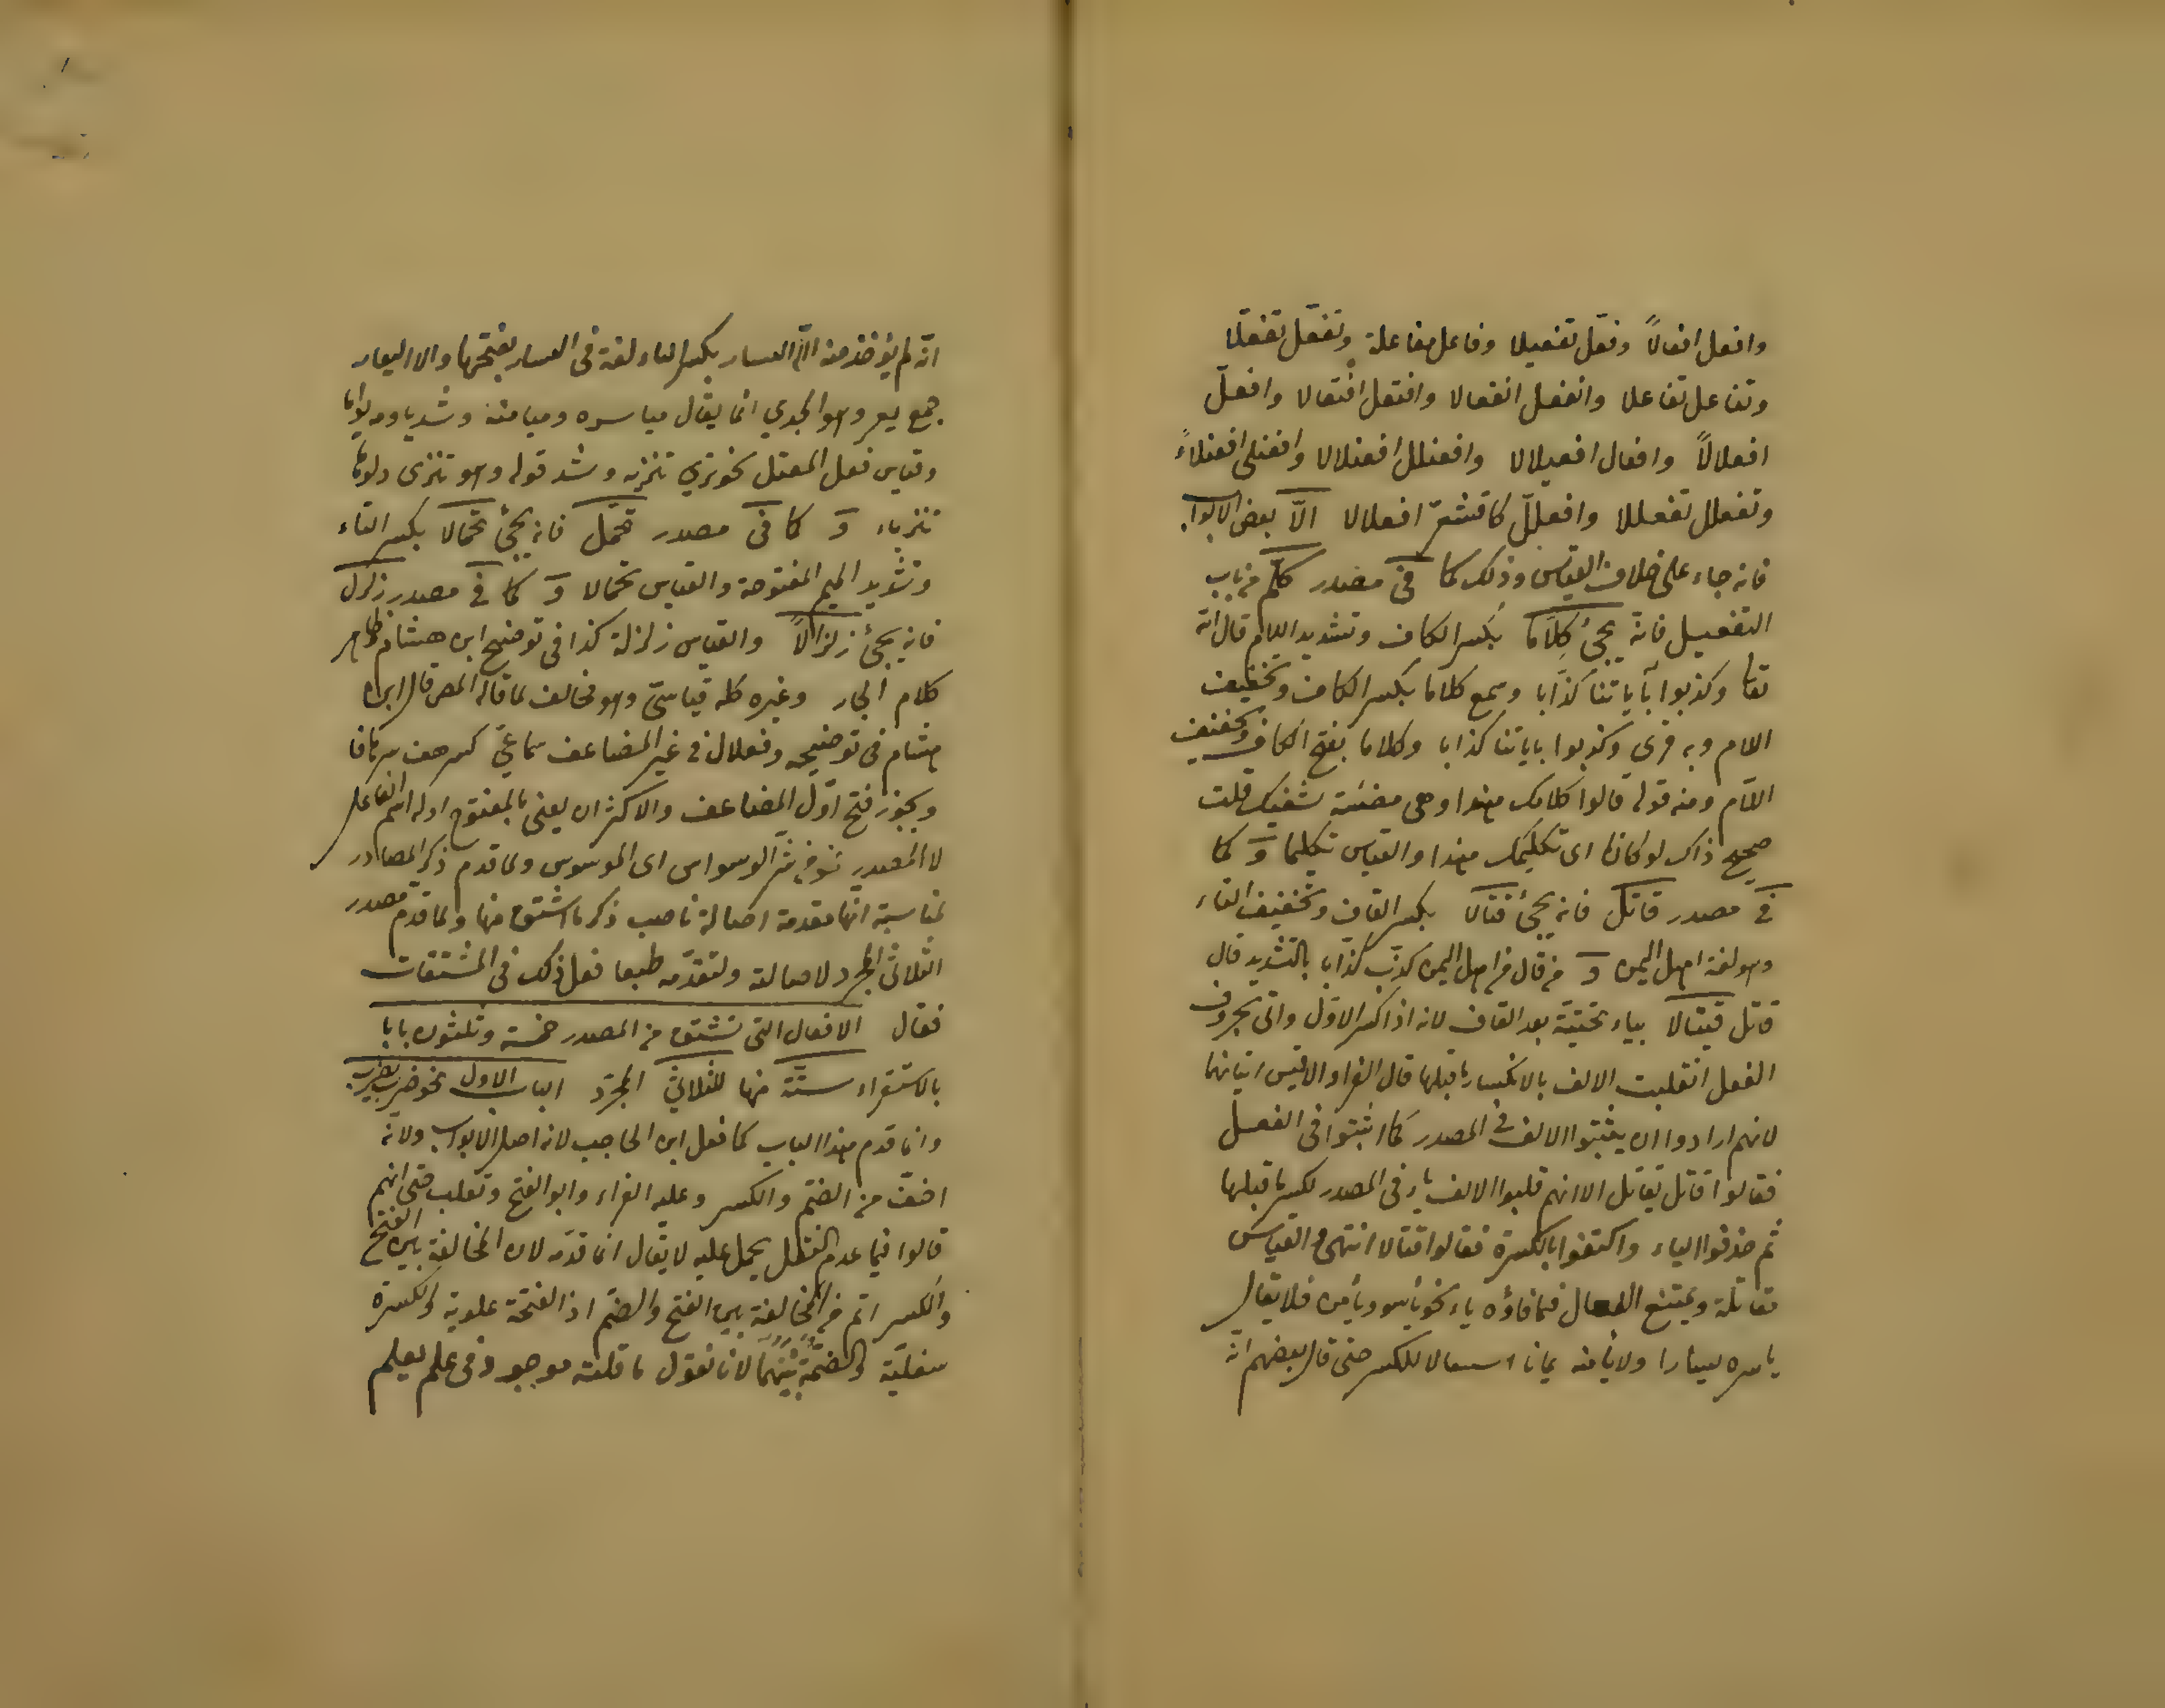 وافعل افعالاً وفعّل تفعيلا وفاعل مفاعلة وتفعّل تفعّلا
وتفاعل تفاعلا وانفعل انفعالا وافتعل افتعالا وافعلّ
افعلالاً وافعال افعيلالا وافعنلل افعنلالا وافعنلى افعنلاءً
وتفعلل تفعللا وافعللّ كاقشعرّ افعلالا الّا بعض الابواب
فانه جاء على خلاف القياس وذلك كما فى مصدر كلّم من باب
التفعيل فانّه يجئ كِلّاما بكسر الكاف وتشديد اللام قال الله
تعا وكذبوا بآياتنا كذّابا وسمع كلاما بكسر الكاف وتخفيف
اللام وبه قرئ وكذبوا باياتنا كذابا وكلاما بفتح الكاف وتخفيف
اللام ومنه قوله قالوا كلامك هندا وهى مصغية يشفيك قلت
صحيح ذاك لو كانا اى تكليمك هندا والقياس تكليما وَ كما
فى مصدر قاتل فانه يجئ قتالا بكسر القاف وتخفيف التاء
وهو لغة اهل اليمن وَ من قال من اهل اليمن كذّب كذّابا بالتشديد قال
قاتل قيتالا بياء تحتيّة بعد القاف لانه اذا كسر الاوّل واتى بحروف
الفعل انقلبت الالف بالانكسار ما قبلها قال الفراء والاقيس اتيانها
لانهم ارادوا ان يثبتوا الالف فى المصدر كما اثبتوا فى الفعل
فقالوا قاتل يقاتل الا انهم قلبوا الالف ياء فى المصدر لكسر ما قبلها
ثم حذفوا الياء واكتفوا بالكسرة فقالوا قتالا انتهى والقياس
مقاتلة ويمتنع الفعال فيما فاؤه ياء نحو ياسر ويامن فلا يقال
ياسره يسارا ولا يامنه يمانا استثقالا للكسر حتى قال بعضهم انّه
انّه لم يؤخذ منه الّا اليسار بكسر الياء لغة فى اليسار بفتحها والا اليعار
جمع يعر وهو الجدي انما يقال مياسره وميامنة وشذ ياومه يواما
وقياس فعل المعتل نحو نزى تنزيه وشذ قوله وهو تنزى دلوها
تنزياء وَ كما فى مصدر تحمّل فانه يجئ تحمّالا بكسر التاء
وتشديد الميم المفتوحة والقياس تحملا وَ كما فى مصدر زلزل
فانه يجئ زلزالاً والقياس زلزلة كذا فى توضيح ابن هشام وظاهر
كلام الجار وغيره كله قياسىّ وهو مخالف لما قاله المص قال ابن
هشام فى توضيحه وفعلال فى غير المضاعف سماعىّ كسرهف سرهافا
ويجوز فتح اوّل المضاعف والاكثر ان يعنى بالمفتوح اوله اسم الفاعل
لا المصدر نحو من شر الوسواس اى الموسوس ولما قدم ذكر المصادر
لمناسبة انها مقدمة اصالة ناسب ذكر ما اشتق منها ولما قدم مصدر
الثلاثى المجرد لاصالته ولتقدّمه طبعا فعل ذلك فى المشتقات
فقال الافعال التى تشتق من المصدر خمسة وثلثون بابا
بالاستقراء ستّة منها للثلاثىّ المجرّد الباب الاول نحو ضرب يضرب
وانما قدم هذا الباب كما فعل ابن الحاجب لانه اصل الابواب ولانّه
اخفّ من الضمّ والكسر وعليه الفراء وابو الفتح وثعلب حتى انهم
قالوا فيما عدم النقل يحمل عليه لا يقال انما قدّمه لان المخالفة بين الفتح
والكسر اتم من المخالفة بين الفتح والضمّ اذ الفتحة علوية والكسرة
سفليّة والضمّة بينهما لانا نقول ما قلته موجود فى علم يعلم